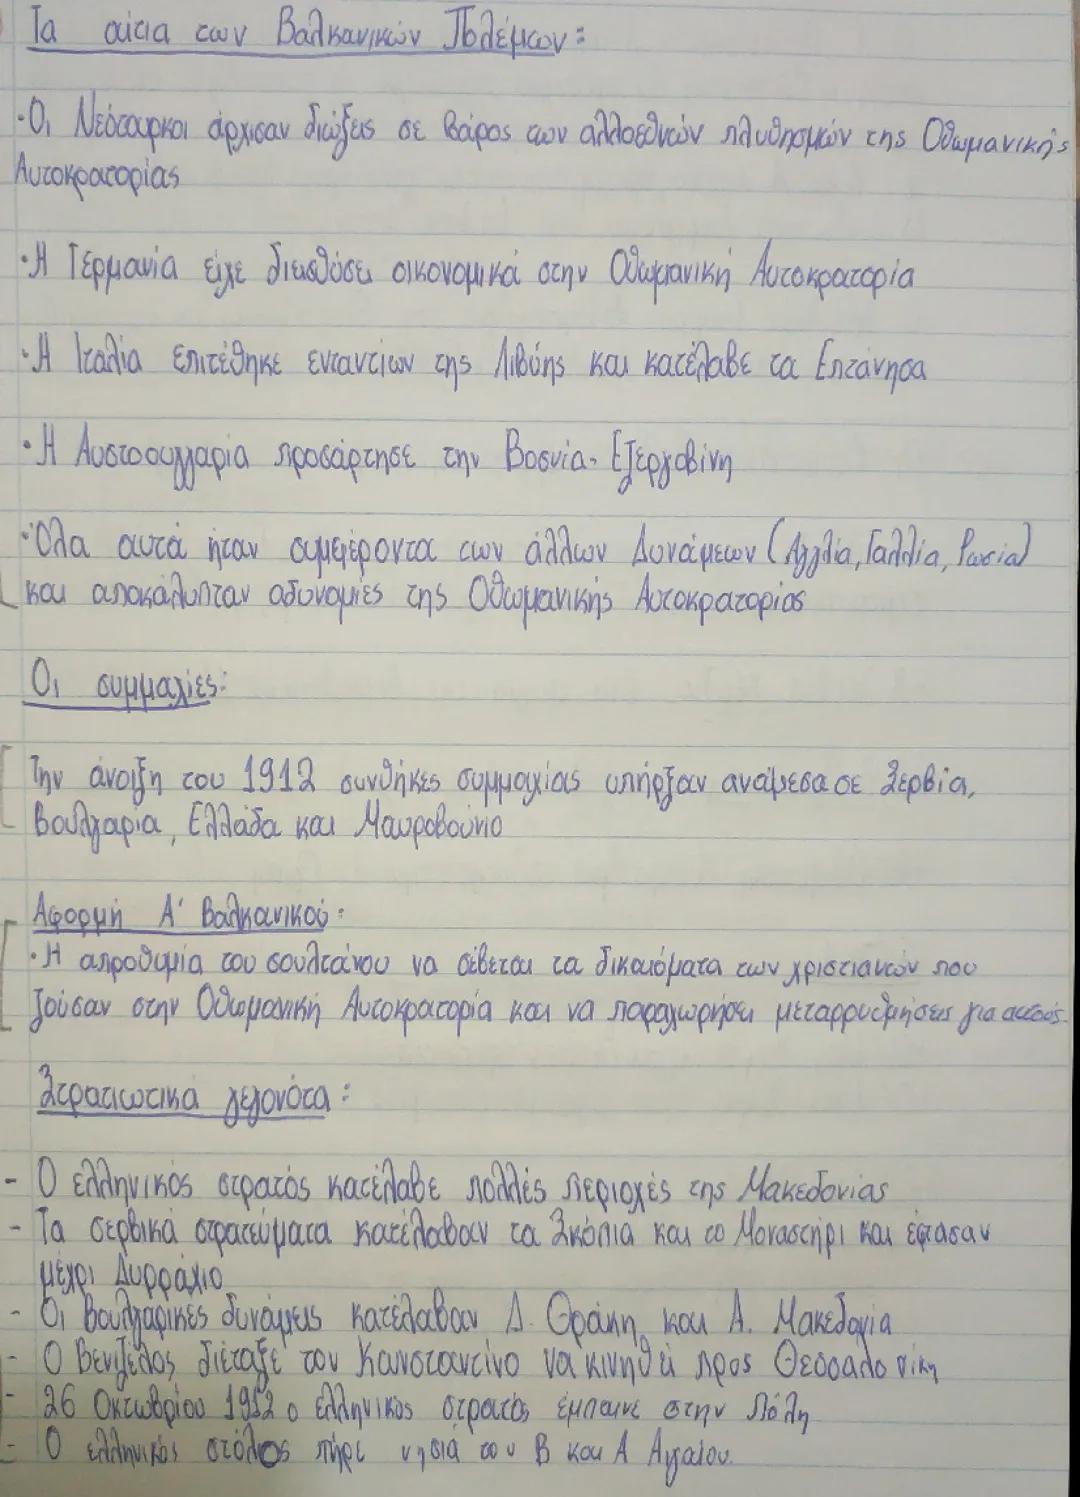 Τα αίτια των Βαλκανικών Πολέμων:
·Οι Νεότουρκοι άρχισαν διώξεις σε βάρος των αλλοεθνών πληθησμών της Οθωμανικής
Αυτοκρατορίας
·Η Γερμανία είχε διεισδύσει οικονομικά στην Οθωμανική Αυτοκρατορία
·Η Ιταλία επιτέθηκε ενταντίων της Λιβύης και κατέλαβε τα Επτάνησα
·Η Αυστροουγγαρία προσάρτησε την Βοσνία-Εζεργοβίνη
·Όλα αυτά ήταν συμφέροντα των άλλων Δυνάμεων (Αγγλία, Γαλλία, Ρωσία)
και αποκάλυπταν αδυναμίες της Οθωμανικής Αυτοκρατορίας
Οι συμμαχίες:
Την άνοιξη του 1912 συνθήκες συμμαχίας υπήρξαν ανάμεσα σε Σερβία,
Βουλγαρία, Ελλάδα και Μαυροβούνιο
Αφορμή Α' Βαλκανικού:
·Η απροθυμία του σουλτάνου να σέβεται τα δικαιόματα των χριστιανών που
ζούσαν στην Οθωμανική Αυτοκρατορία και να παραχωρήσει μεταρρυθμήσεις για αυτούς.
Στρατιωτικά γεγονότα:
- Ο ελληνικός στρατός κατέλαβε πολλές περιοχές της Μακεδονίας
- Τα σερβικά στρατεύματα κατέλαβαν τα Σκόπια και το Μοναστήρι και έφτασαν
μέχρι Δυρράχιο
- Οι βουλγαρικές δυνάμεις κατέλαβαν Δ. Θράκη και Α. Μακεδονία
- Ο Βενιζέλος διέταξε τον Κωνσταντίνο να κινηθεί προς Θεσσαλονίκη
- 26 Οκτωβρίου 1912 ο ελληνικός στρατός έμπαινε στην Πόλη
- Ο ελληνικός στόλος πήρε νησιά του Β και Α Αιγαίου.